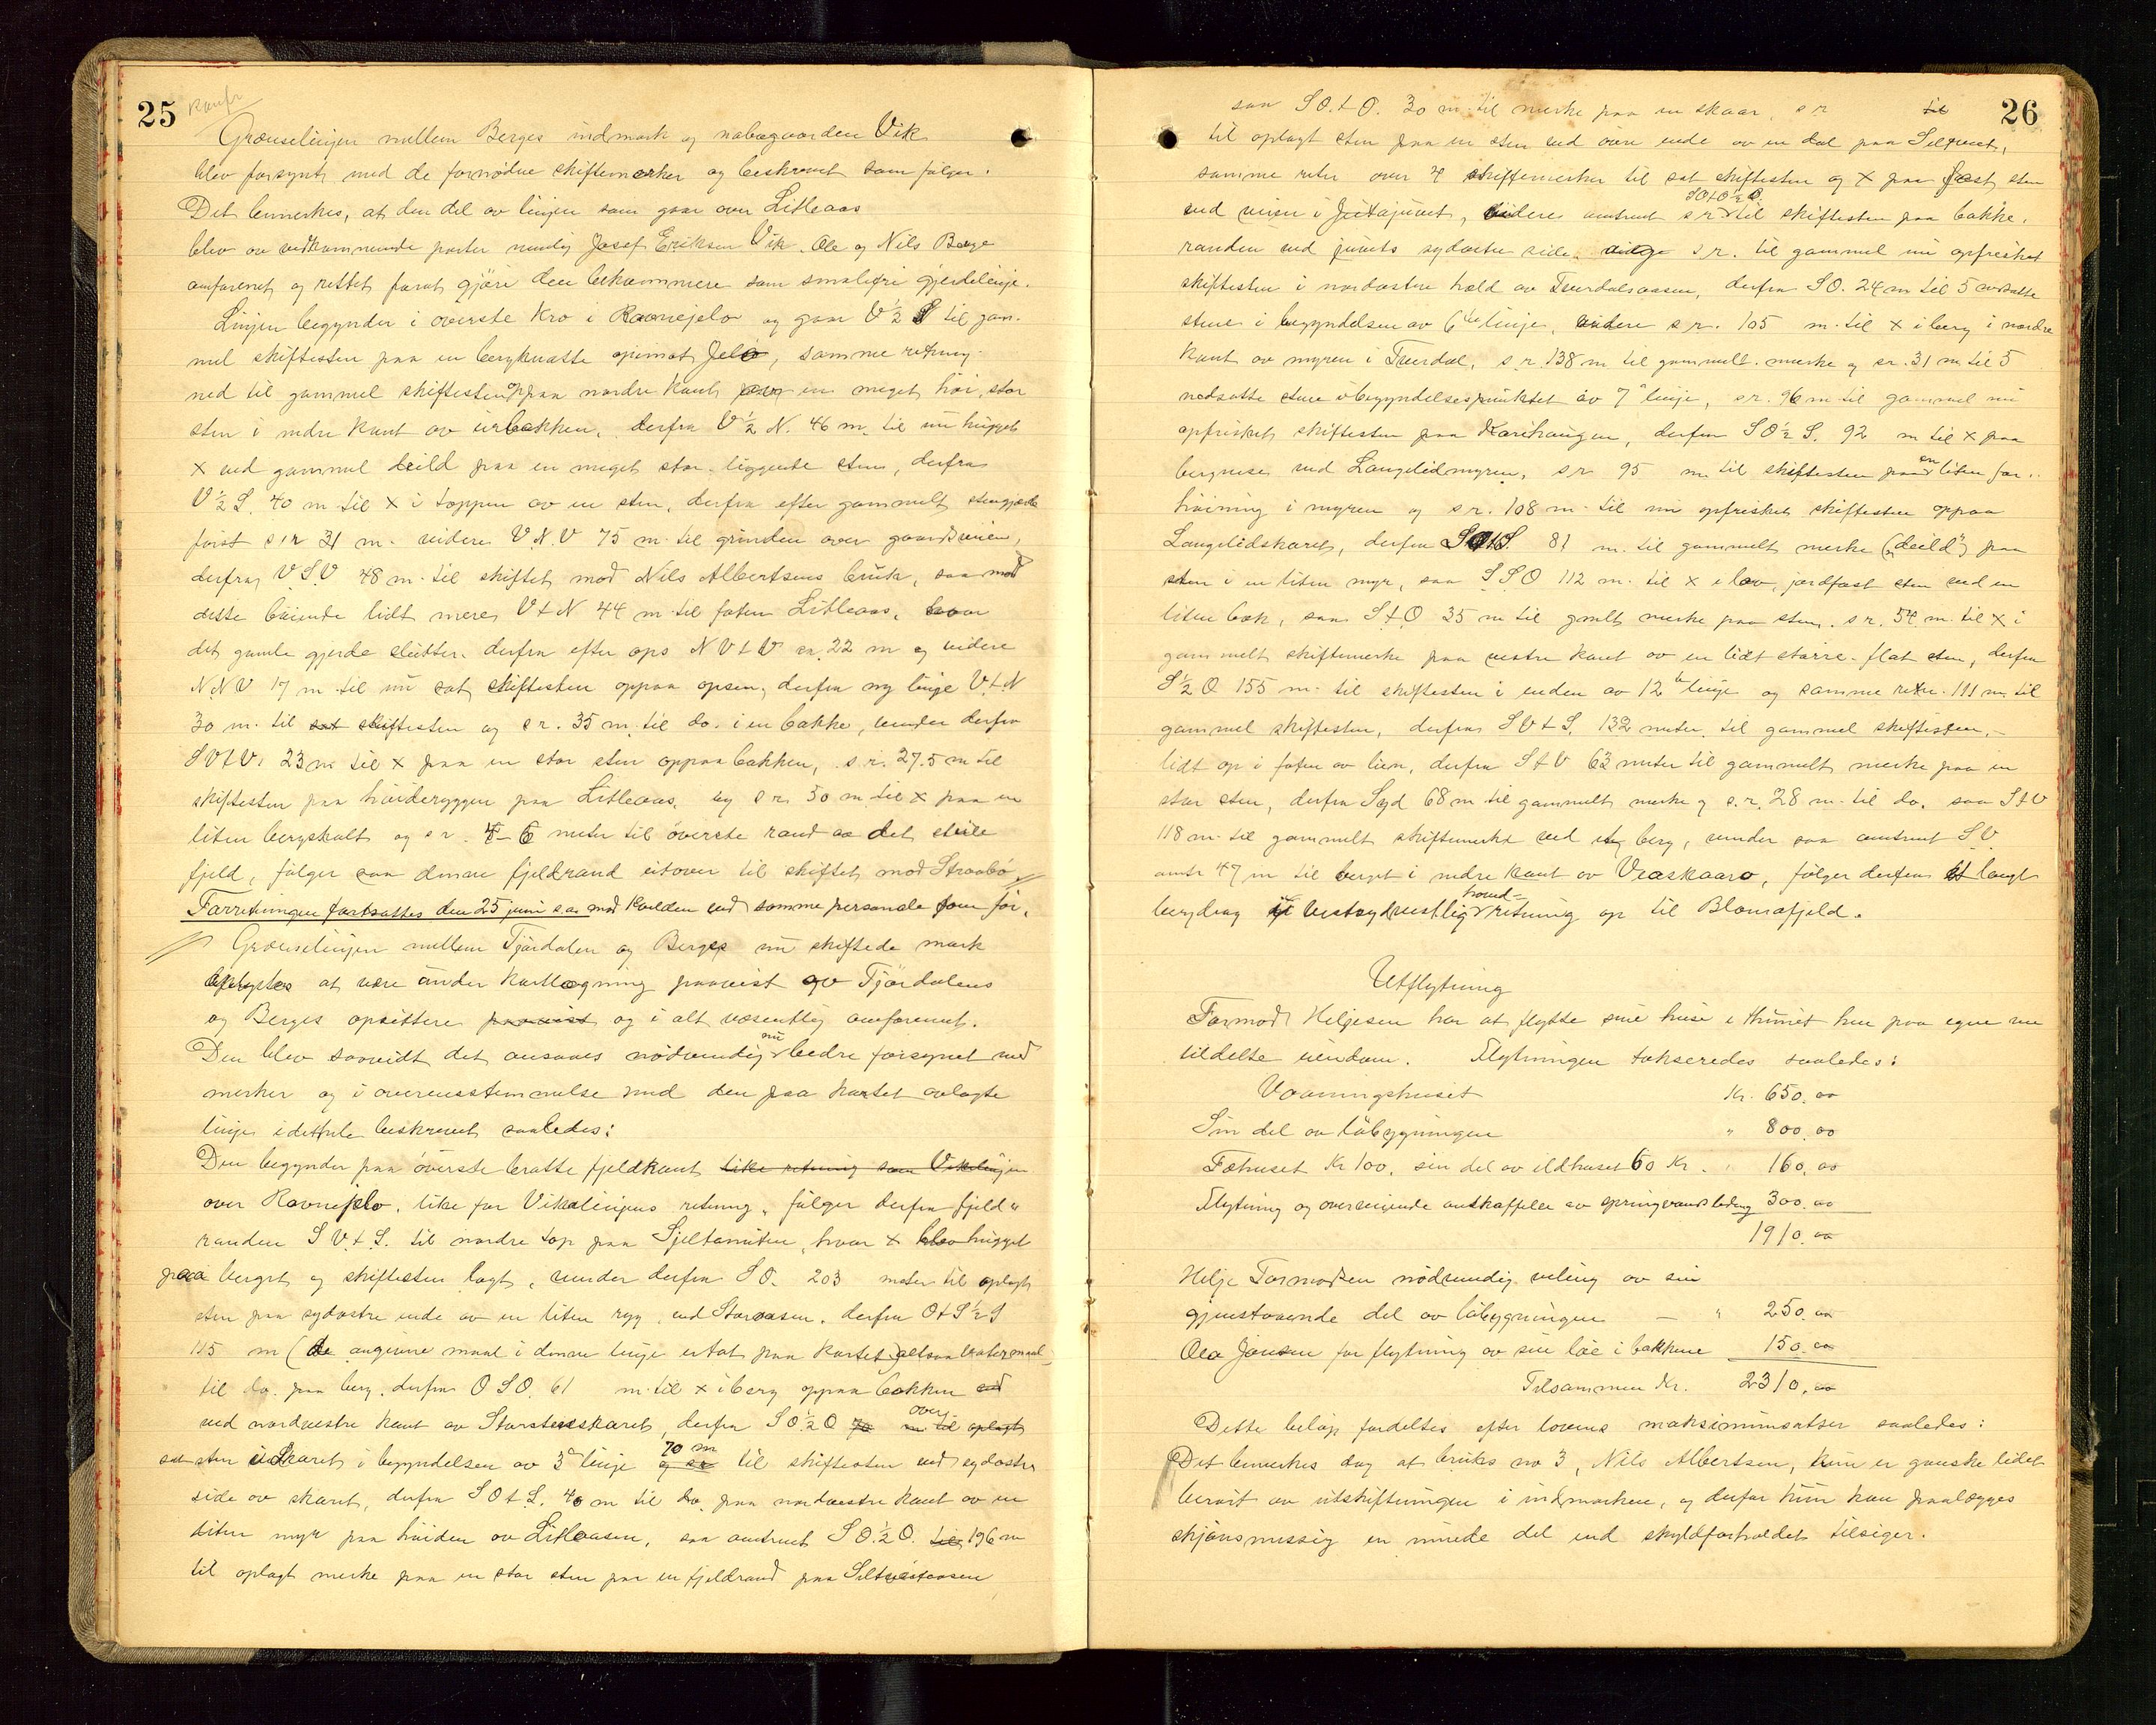 25
Grænselinjen mellem Berges indmark og nabogaarden Vik
blev forsynt med de fornødne skiftemerker og beskrevet som følger.
Det bemerkes, at den del av linjen som gaar over Litleaas
blev av vedkommende parter nemlig Josef Eriksen Vik, Ole og Nils Berge
omforenet og rettet forat gjøre den bekvemmere som smalefri gjerdelinje.
Linjen begynder i øverste kro i Ravnejelo og gaar V ½ S til gam-
mel skiftesten paa en bergknatte opimot Jelo, samme retning
ned til gammel skiftesten oppaa nordre kant en meget høi, stor
sten i nedre kant av urbakken, derfra V ½ N. 46 m. til nu hugget
x ved gammel deild paa en meget stor liggende sten, derfra
V ½ S. 40 m til x i toppen av en sten, derfra efter gammelt stengjerde
først s.r 31 m. videre V.N.V 75 m til grinden over gaardsveien,
derfra V S.V 48 m til skiftet mod Nils Albertsens bruk, saa mod
dette bøiende lidt mere V t N 44 m til foten Litleaas, hvor
det gamle gjerde slutter, derfra efter ops N V t V ca. 22 m og videre
N.N.V 17 m til nu sat skiftesten oppaa opsen, derfra ny linje V t N
30 m. til sat skiftesten og s r. 35 m til do. i en bakke, vender derfra
S V t V. 23 m til x paa en stor sten oppaa bakken, s.r. 27.5 m til
skiftesten paa høideryggen paa Litleaas, og s r. 50 m til x paa en
liten bergskolt og s r. 6 meter til øverste rand av det steile
fjeld, følger saa denne fjeldrand utover til skiftet mod Straabø
Forretningen fortsattes den 25 juni s.a. mod kvelden ved samme personale som før.
Grænselinjen mellem Tjørdalen og Berges nu skiftede mark
oplystes at være under kartlægning paavist av Tjørdalens
og Berges opsittere paavist og i alt væsentlig omforenet.
Den blev saavidt det ansaaes nødvendig nu bedre forsynet med
merker og i overensstemmelse med den paa kartet avlagte
linje i dethele beskrevet saaledes:
Den begynder paa øverste bratte fjeldkant like retning som Vikelinjen
over Ravnejelo, like for Vikalinjens retning, følger derfra fjeld-
randen S V. t S. til nordre top paa Sjeltanuten, hvor x blev hugget
paa berget og skiftesten lagt, vender derfra S O. 203 meter til oplagt
sten paa sydøstre ende av en liten ryg ved Storaasen, derfra O t S ½ S
115 m (de angivne maal i denne linje er tat paa kartet, altsaa vatermaal
til do. paa berg, derfra O S O. 61 m. til x i berg oppaa bakken ved
ved nordvestre kant av Storstesskaret, derfra S O. ½ O 70 m til oplagt over
sat sten i skaret i begyndelsen av 3die linje og sr 70 m til skiftesten ved sydøstre
side av skaret, derfra S O t S. 40 m til do. paa nordvestre kant av en
liten myr paa høiden av Litleaasen, saa omtrent S O. ½ O. til 196 m
til oplagt merke paa en stor sten paa en fjeldrand paa
26
saa S O. t O. 30 m. til merke paa en skaar, s r til
til oplagt sten paa en sten ved øvre ende av en dal paa
samme retn over 4 skiftemerker til sat skiftesten og x paa fast sten
ved veien i Jutajuvet, videre omtrent s r SO t O ½ O. til skiftesten paa bakke-
randen ved juvets sydøstre side, s r. til gammel nu opfrisket
skiftesten i nordøstre hæld av Tverdalsaasen, derfra S O. 24 m til 5 nedsatte
stene i begyndelsen av 6te linje, videre s r. 105 m. til x i berg i nordre
kant av myren i Tverdal, s.r. 138 m til gammelt merke og sr. 31 m til 5
nedsatte stene i begyndelsespunktet av 7de linje, s r. 96 m til gammel nu
opfrisket skiftesten paa Karihaugen, derfra S O ½ S. 92 m til x paa
bergnese ved Langelidmyren, s r 95 m til skiftesten paa en liten for-
høining i myren og s r. 108 m. til nu opfrisket skiftesten oppaa
Langelidskaret, derfra SO t S. 81 m. til gammelt merke ("deild") paa
sten i en liten myr, saa S S O 112 m. til x i lav, jordfast sten ved en
liten bæk, saa S t O 35 m til gmlt merke paa sten, s r. 54 m til x i
gammelt skiftemerke paa vestre kant av en lidt større flat sten, derfra
S ½ O 155 m. til skiftesten i enden av 12te linje og samme retn. 111 m. til
gammel skiftesten, derfra S V t S, 132 meter til gammel skiftesten,
lidt op i foten av lien, derfra S t V 63 meter til gammelt merke paa en
stor sten, derfra Syd 68 m til gammelt merke og s.r. 28 m. til do. saa S t V
118 m til gammelt skiftemerke ved et berg, vender saa omtrent S V.
omtr 47 m til berget i nedre kant av Vraskaaro, følger derfra et langt
bergdrag i vestsydvestlig hoved- retning op til Blomsafjeld.
Utflytning
Tormod Heljesen har at flytte sine huse i thunet hen paa egne nu
tildelte eiendom. Flytningen takseredes saaledes:
Vaaningshuset Kr. 650.00
Sin del av løbygningen " 800.00
Fæhuset Kr 100. sin del av ildhuset 60 Kr. " 160.00
Flytning og overveiende anskaffelse av springvandsledning 300.00
1910.00
Helje Tormodsen nødvendig veling av sin
gjenstaaende del av løbygningen — " 250.00
Ola Jonsen for flytning av sin løe i bakkene 150.00
Tilsammen Kr. 2310.00
Dette beløp fordeltes efter lovens maksimumsatser saaledes:
Det bemerkes dog at bruks no 3, Nils Albertsen, kun er ganske lidet
berørt av utskiftningen i indmarken, og derfor kun kan paalægges
skjønsmessig en mindre del end skyldforholdet tilsiger.